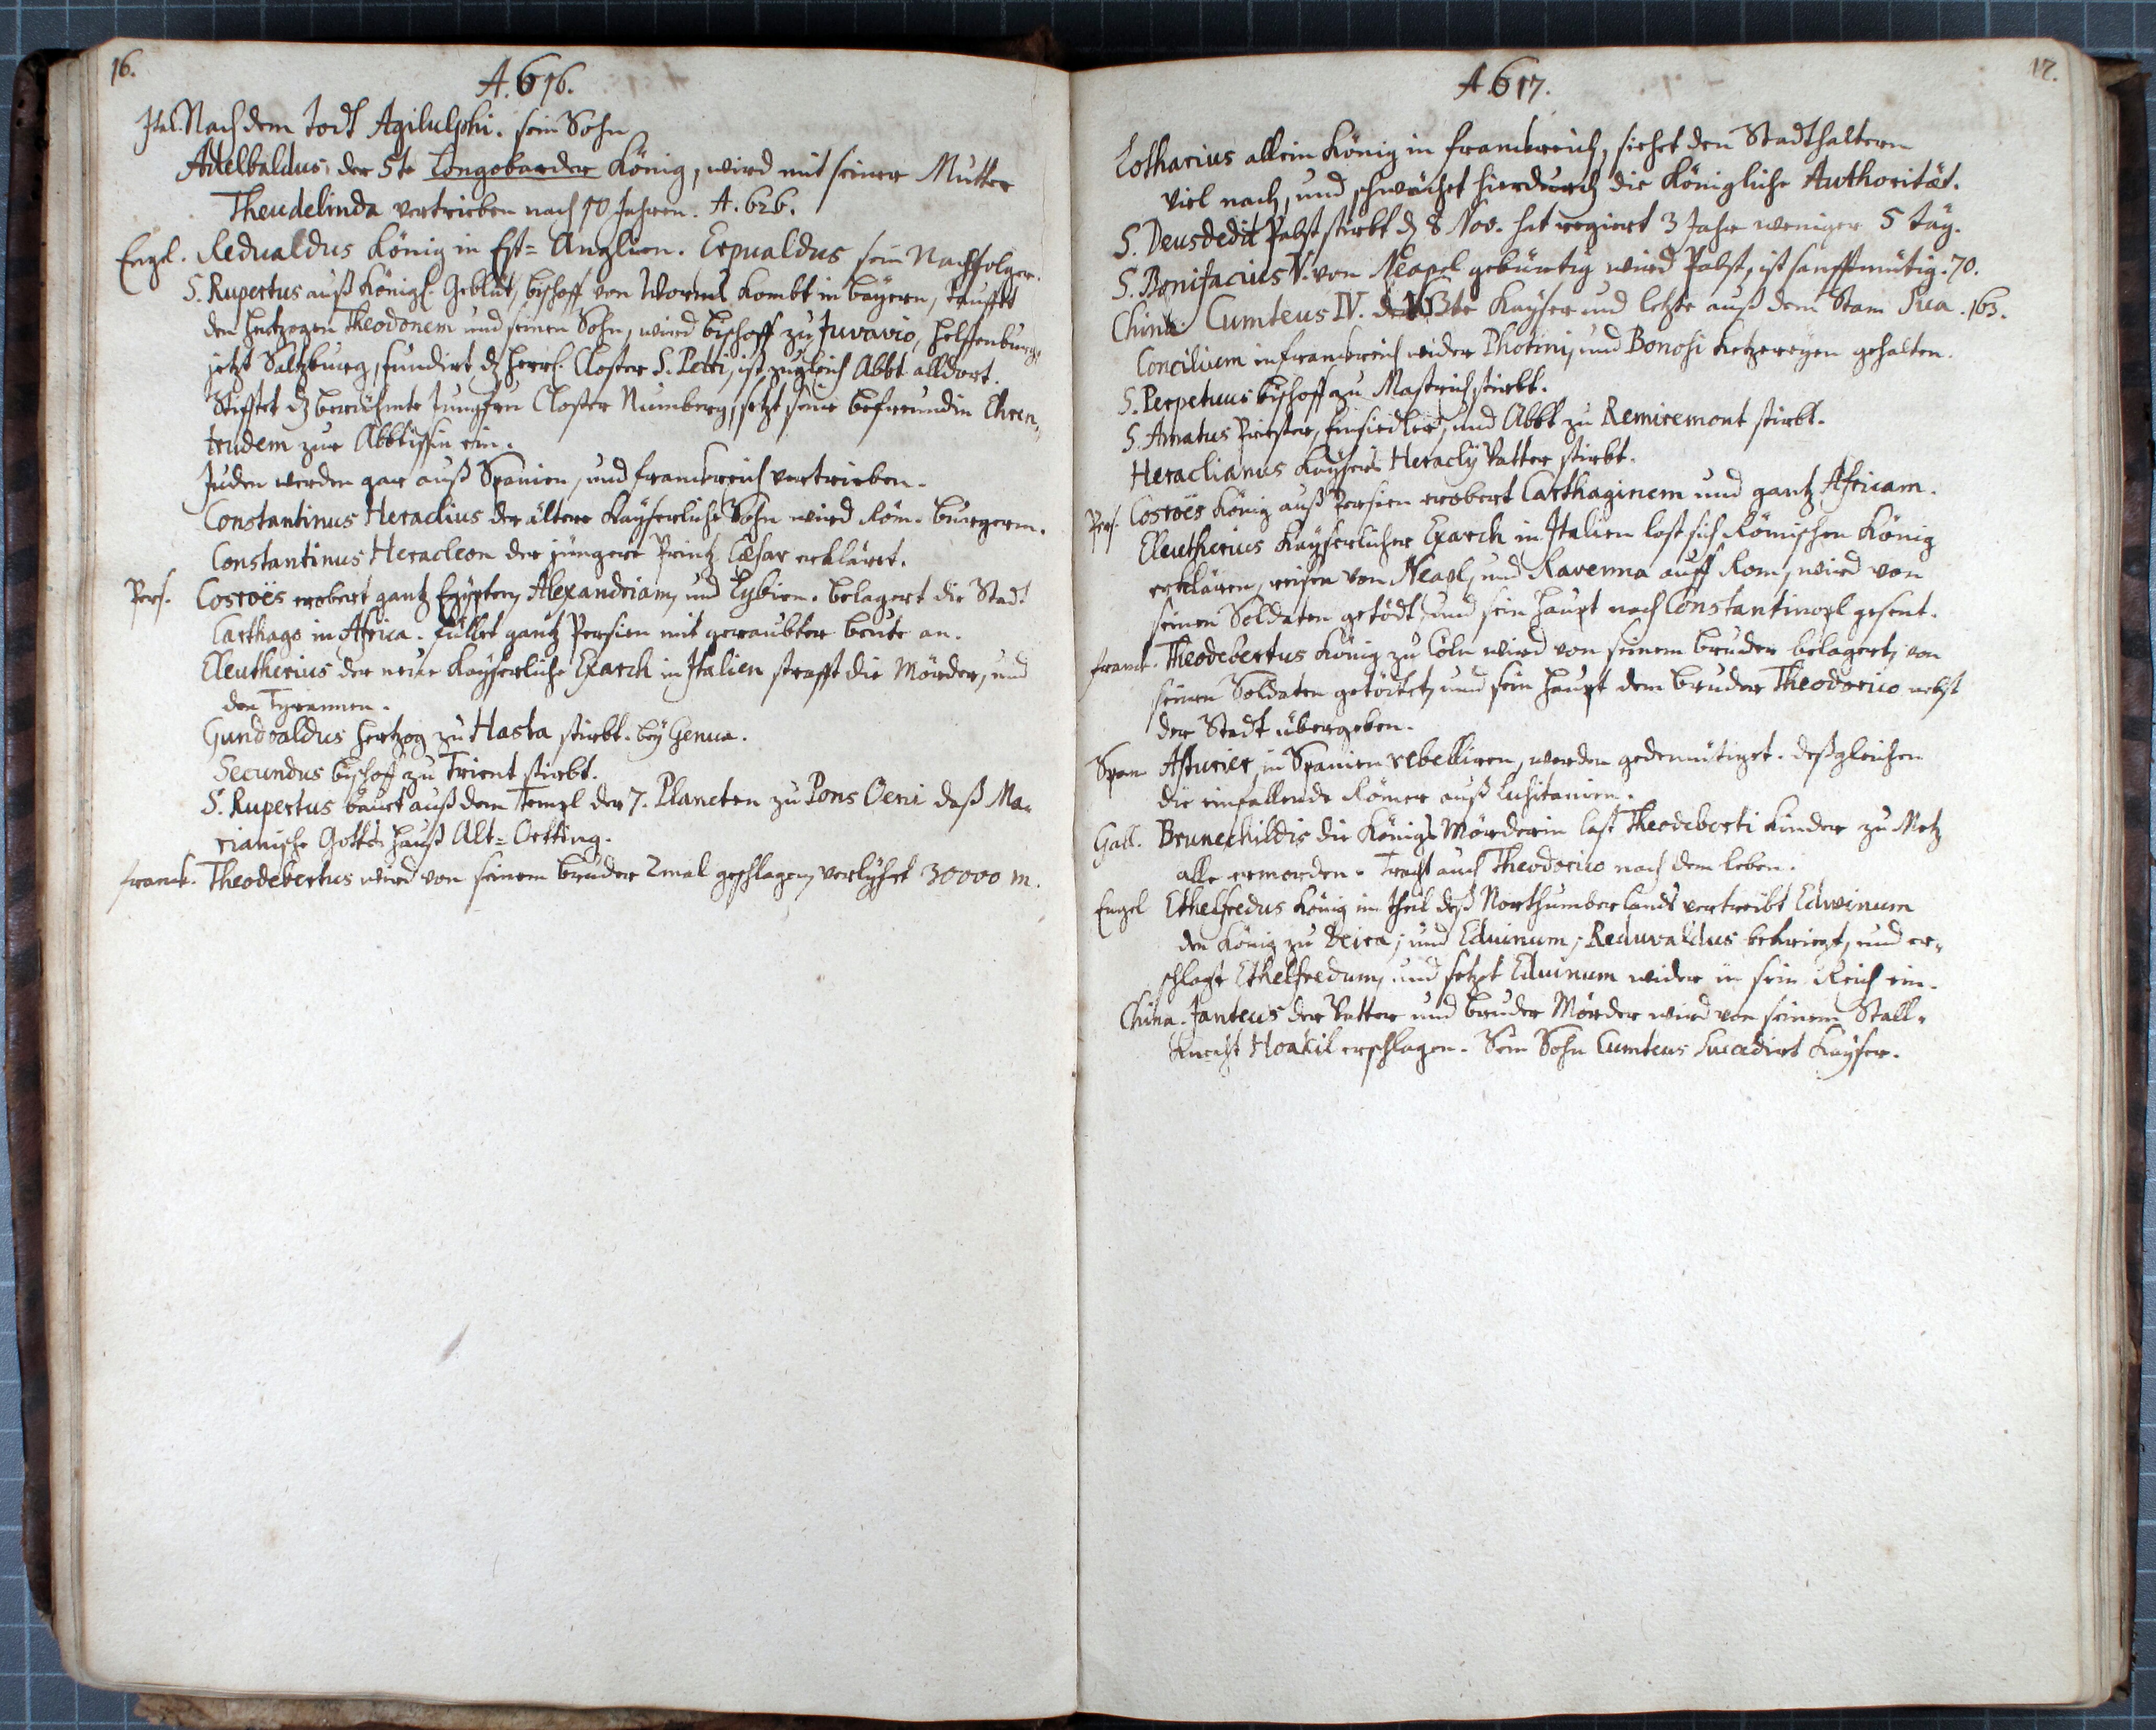 16.
A. 616.
Ital. Nach dem Todt Agilulphi. sein Sohn
Adelbaldus, der 5te Longobarder König, wird mit seiner Mutter
Theudelinda vertrieben nach 10 Jahren. A. 626.
Engl. Redualdus König in Est= Anglien. Erpualdus sein Nachfolger.
S. Rupertus auß Königl. Geblüt, bischoff von Worms kombt in bayern, taufftt
den Hertzogen Theodonem und seinen Sohn, wird bischoff zu Juvavio, Helffenburg,
jetzt Saltzburg, fundirt dz herrl. Closter S. Petri, ist zugleich Abbt alldort.
Stifftet dz berühmte Jungfrn Closter Nunberg, setzt seine befreundin Ehren,,
trudem zur Abbtissin ein.
Juden werden gar auß Spanien, und franckreich vertrieben.
Constantinus Heraclius der ältere Kayserliche Sohn wird Röm. burgerm.
Constantinus Heracleon der jüngere Printz Cæsar erklärt.
Pers. Cosroës erobert gantz Egypten, Alexandriam, und Lybien. belagert die Stadt
Carthago in Africa. füllet gantz Persien mit geraubter beute an.
Eleutherius der neue Kayserliche Exarch in Italien strafft die Mörder, und
den Tyrannen.
Gundoaldus Hertzog zu Hasta stirbt. bey Genua.
Secundus bischoff zu Trient stirbt.
S. Rupertus bauet auß dem Tempel der 7. Planeten zu Pons Oeni daß Ma,
rianische Gotts Hauß Alt=Oetting.
franck. Theodebertus wird von seinem bruder 2mal geschlagen, verlihrt 30000 m.
17.
A. 617.
Lotharius allein König in franckreich, siehet den Stadthaltern
viel nach, und schwächet hierdurch die Königliche Authoritæt.
S. Deusdedit Pabst stirbt d. 8 Nov. hat regiert 3 Jahr weniger 5 täg.
S. Bonifacius V. von Neapel gebürtig wird Pabst, ist sanfftmütig. 70.
China Cumteus IV. der 163te Kayser und letzte auß dem Stam Sua. 163.
Concilium in franckreich wider Photini, und Bonosi Ketzereyen gehalten.
S. Perpetuus bischoff zu Mastrich stirbt.
S. Amatus Priester, Einsiedler, und Abbt zu Remiremont stirbt.
Heraclianus Kaysers Heraclÿ Vatter stirbt.
Pers. Cosroës König auß Persien erobert Carthaginem und gantz Africam.
Eleutherius Kayserlicher Exarch in Italien last sich Römischen König
erklären, reisen von Neapl, und Ravenna auff Rom, wird von
seinen Soldaten getödt, und sein Haupt nach Constantinopl gesent.
franck. Theodebertus König zu Cöln wird von seinem bruder belagert, von
seinen Soldaten getödtet, und sein Haupt dem bruder Theodorico nebst
der Stadt übergeben.
Span Asturier, in Spanien rebelliren, werden gedemütiget. deßgleichen
die einfallende Römer auß Lusitanien.
Gall. Brunechildis die Königs Mörderin last Theodeberti Kinder zu Metz
alle ermorden. Tracht auch Theodorico nach dem leben.
Engel Ethelfredus König im theil deß Northumberlands vertreibt Edwinum
den König zu Deira; und Eduinum; Reduvaldus bekriegt, und er,
schlagt Ethelfredum, und setzt Eduinum wider in sein Reich ein.
China. Janteus der Vatter und bruder Mörder wird von seinem Stall,
Knecht Hoakil erschlagen. Sein Sohn Cumteus succedirt Kayser.